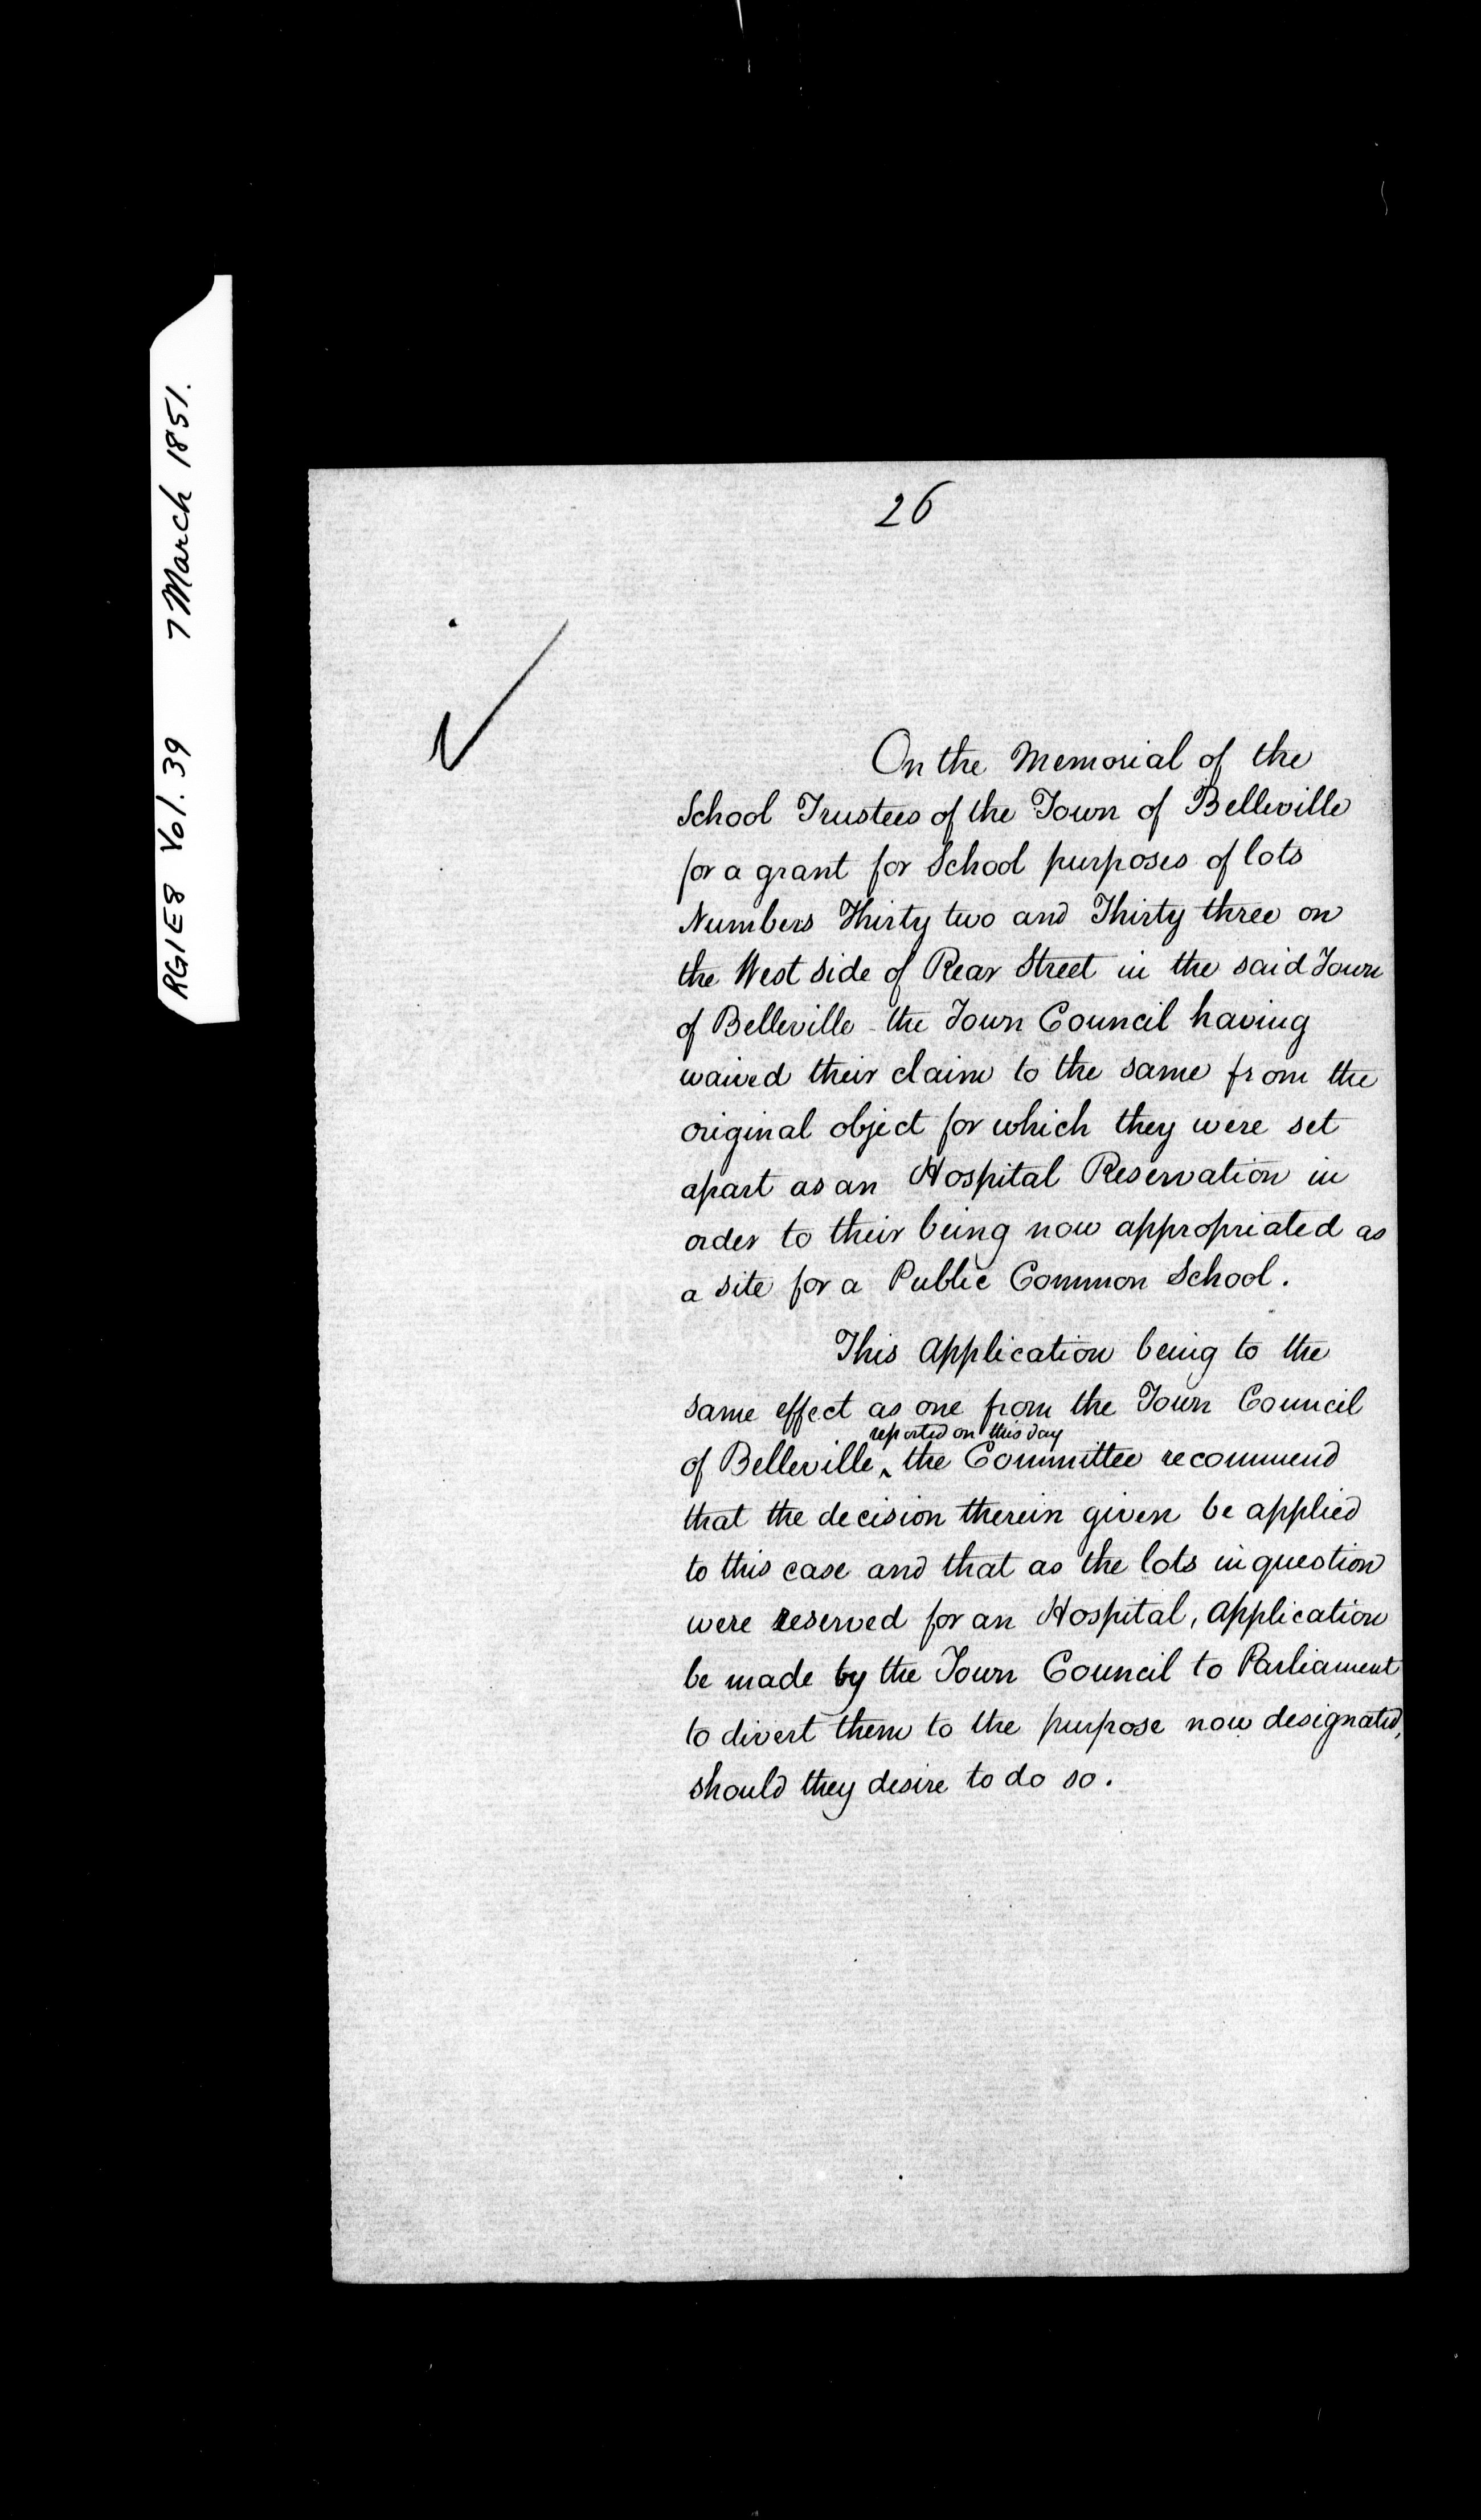 RG1E8 Vol. 39 7 March 1851.
26
On the Memorial of the
School Trustees of the Town of Belleville
for a grant for School purposes of lots
Numbers Thirty two and Thirty three on
the West side of Rear Street in the said Town
of Belleville - the Town Council having
waived their claim to the same from the
original object for which they were set
apart as an Hospital Reservation in
order to their being now appropriated as
a site for a Public Common School.
This Application being to the
same effect as one from the Town Council
reported on this day
of Belleville ‸ the Committee recommend
that the decision therein given be applied
to this case and that as the lots in question
were reserved for an Hospital, Application
be made by the Town Council to Parliament
to divert them to the purpose now designated,
should they desire to do so.